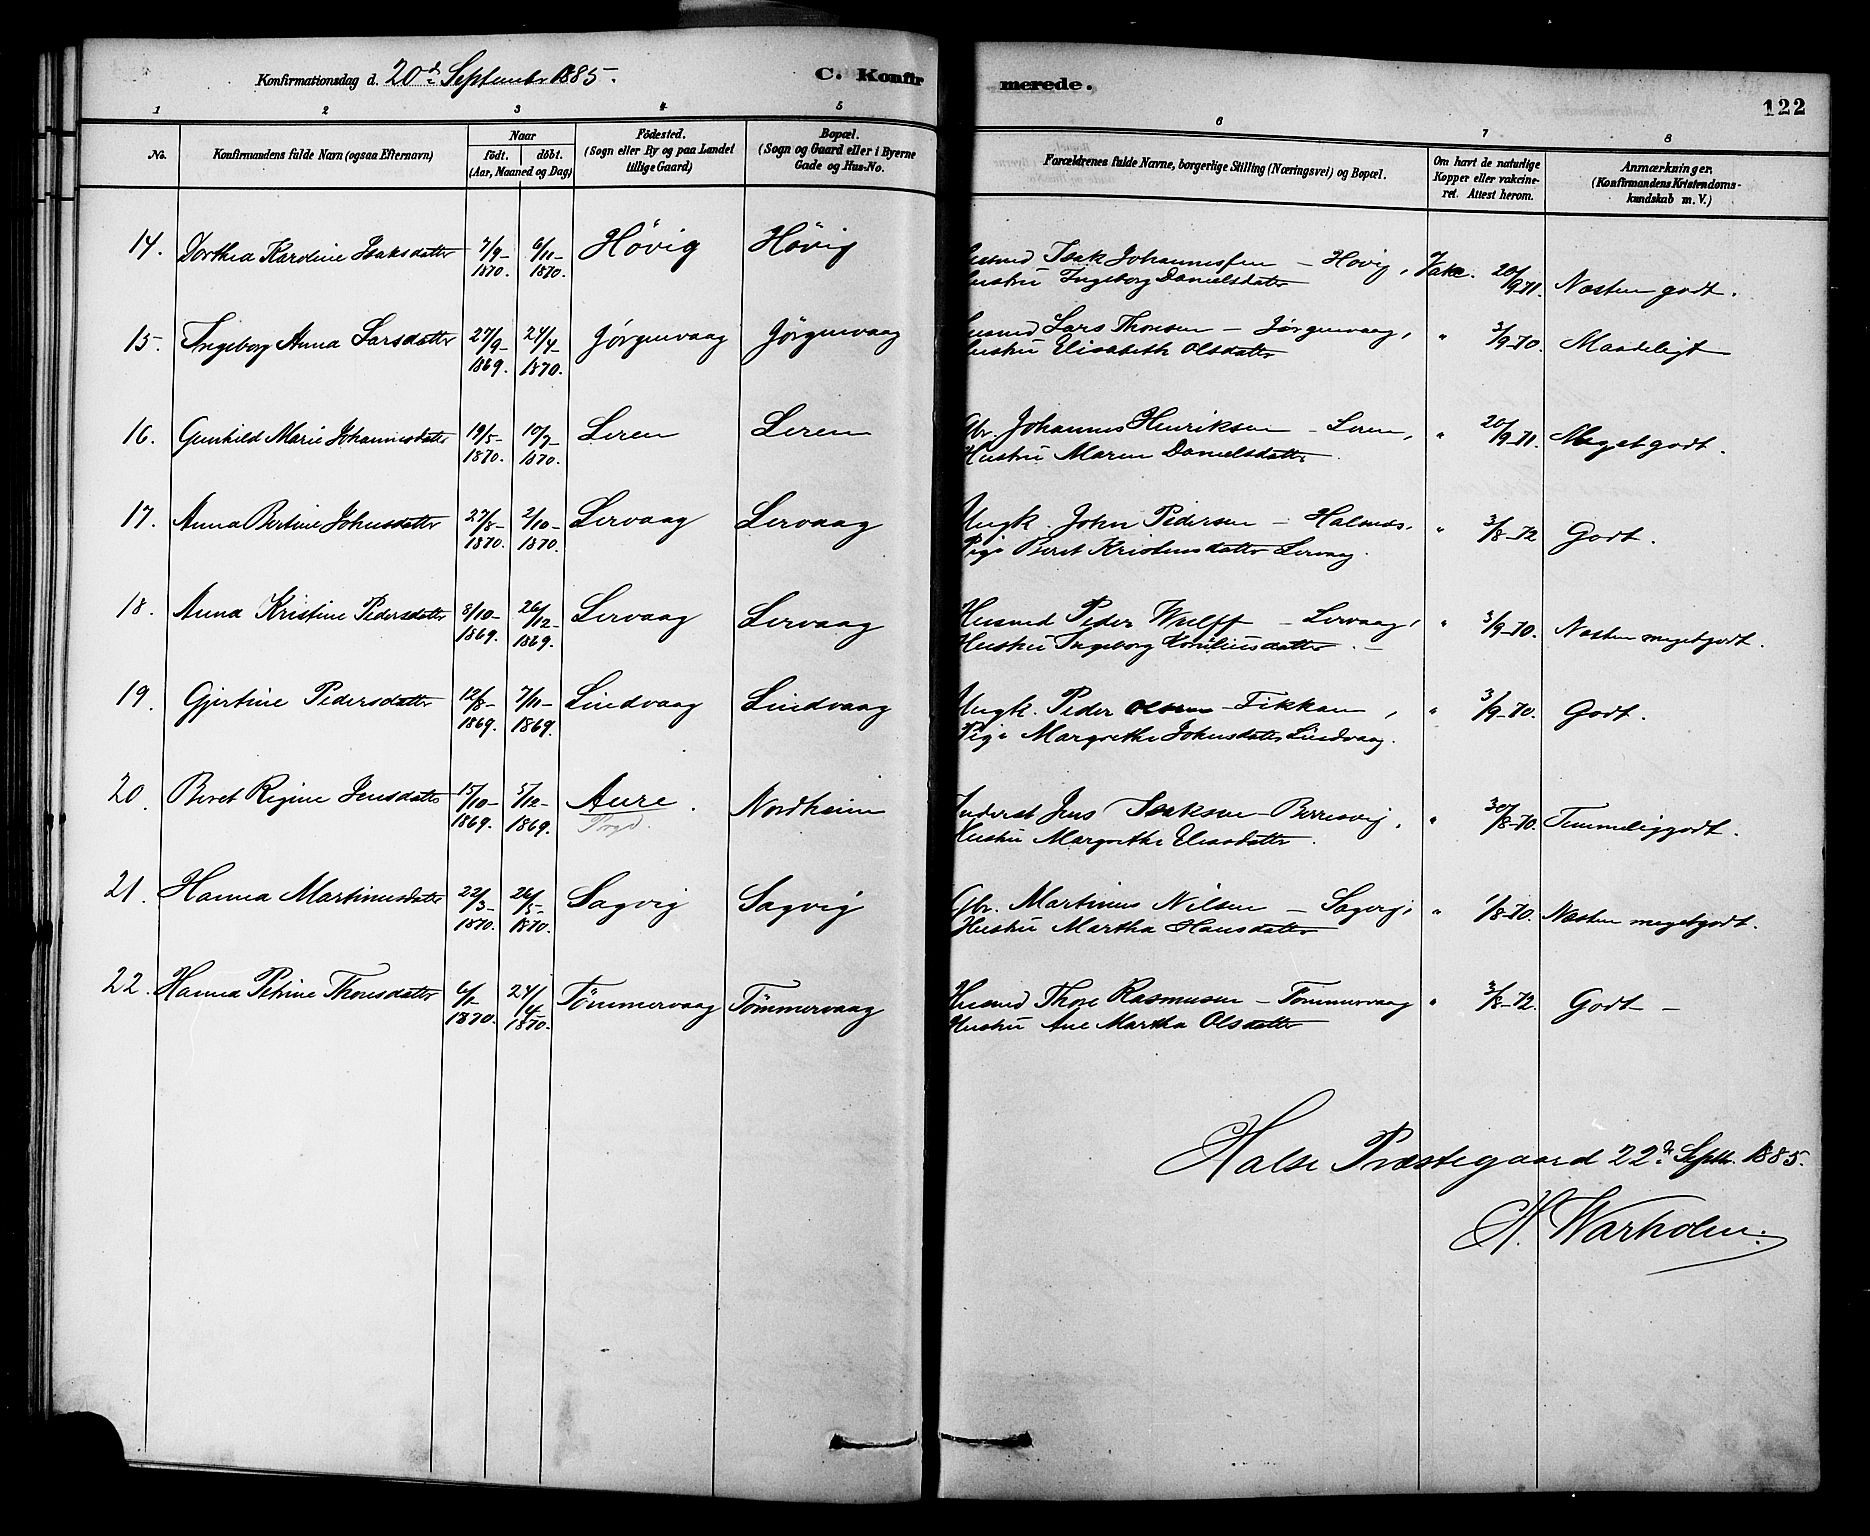 Konfirmationsdag d. 20de September 1885.
C. Konfirmerede.
122
1 2 3 4 5 6 7 8
No.
Konfirmandens fulde Navn (ogsaa Efternavn)
Naar
födt. döbt.
(Aar, Maaned og Dag)
Födested.
(Sogn eller By og paa Landet
tillige Gaard)
Bopæl.
(Sogn og Gaard eller i Byerne
Gade og Hus-No.
Forældrenes fulde Navne, borgerlige Stilling (Næringsvei) og Bopæl.
Om havt de naturlige
Kopper eller vakcine-
ret. Attest herom.
Anmærkninger,
(Konfirmandens Kristendoms-
kundskab m. V.)
14. Dorthea Karoline Isaksdatter 7/9-1870. 6/11-1870. Hövig Hövig
Husmd Isak Johannesen - Hövig, Vakc. 20/9-71. Næsten godt.
Hustru Ingeborg Danielsdatter
15. Ingeborg Anna Larsdatter 27/9-1869. 24/4-1870. Jörgenvaag Jörgenvaag
Husmd Lars Thoresen - Jörgenvaag, " 3/9-70. Maadeligt
Hustru Elisabeth Olsdatter
16. Gunhild Marie Johannesdatter 19/5-1870. 10/7-1870. Leren Leren
Gbr. Johannes Henriksen - Leren, " 20/9-71. Meget godt.
Hustru Maren Danielsdatter.
17. Anna Bertine Johnsdatter 27/8-1870. 2/10-1870. Lervaag Lervaag
Ungk. John Pedersen - Halsnds. " 3/8-72 Godt.
Pige Beret Kristensdatter Lervaag.
18. Anna Kristine Pedersdatter 8/10-1869. 26/12-1869. Lervaag Lervaag
Husmd Peder Wulff - Lervaag, " 3/9-70. Næsten megetgodt.
Hustru Ingeborg Korneliusdatter. -
19. Gjertine Pedersdatter 12/8-1869. 7/11-1869. Lindvaag Lindvaag
Ungk. Peder Olsen - Fikkan, " 3/9-70. Godt.
Pige Margrethe Johnsdatter Lindvaag.
20. Beret Regine Jensdatter 15/10-1869. 5/12-1869. Aure. Prgd. Nordheim
Inderst Jens Isaksen - Berresvig, " 30/8-70. Temmeliggodt.
Hustru Margrethe Eliasdatter.
21. Hanna Martinusdatter 22/3-1870. 26/5-1870. Sagvig Sagvig
Gbr. Martinus Nilsen - Sagvig, " 1/8-70. Næsten megetgodt.
Hustru Martha Hansdatter
22. Hanna Petrine Thoresdatter 6/2 1870. 24/4-1870. Tömmervaag Tömmervaag
Husmd Thore Rasmusen - Tömmervaag " 3/8-72. Godt -
Hustru Ane Martha Olsdatter
Halse Præstegaard 22de Septbr. 1885.
H. Warholm.